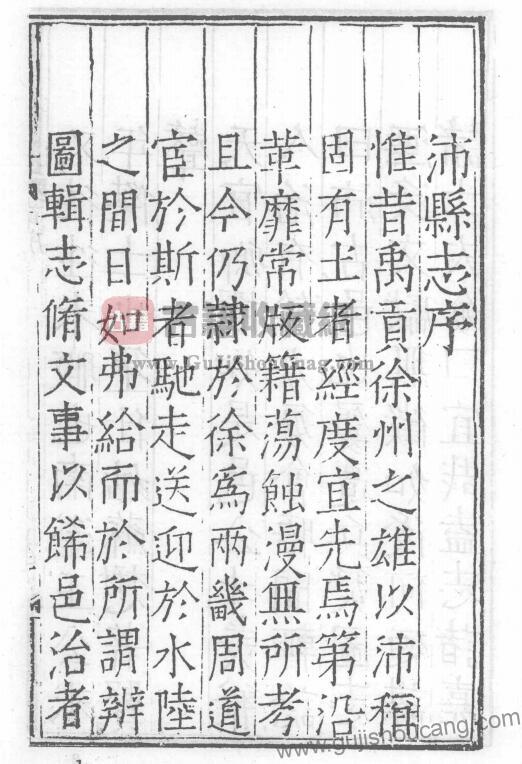 沛縣志序
惟昔禹貢徐州之雄以沛稱
固有土者經度宜先焉第沿
革靡常版籍蕩蝕漫無所考
且今仍隸於徐爲兩畿周道
宦於斯者馳走送迎於水陸
之間日如弗給而於所謂辨
圖輯志脩文事以餙邑治者
古籍收藏
www.GuJiShouCang.com
www.gujishoucang.com